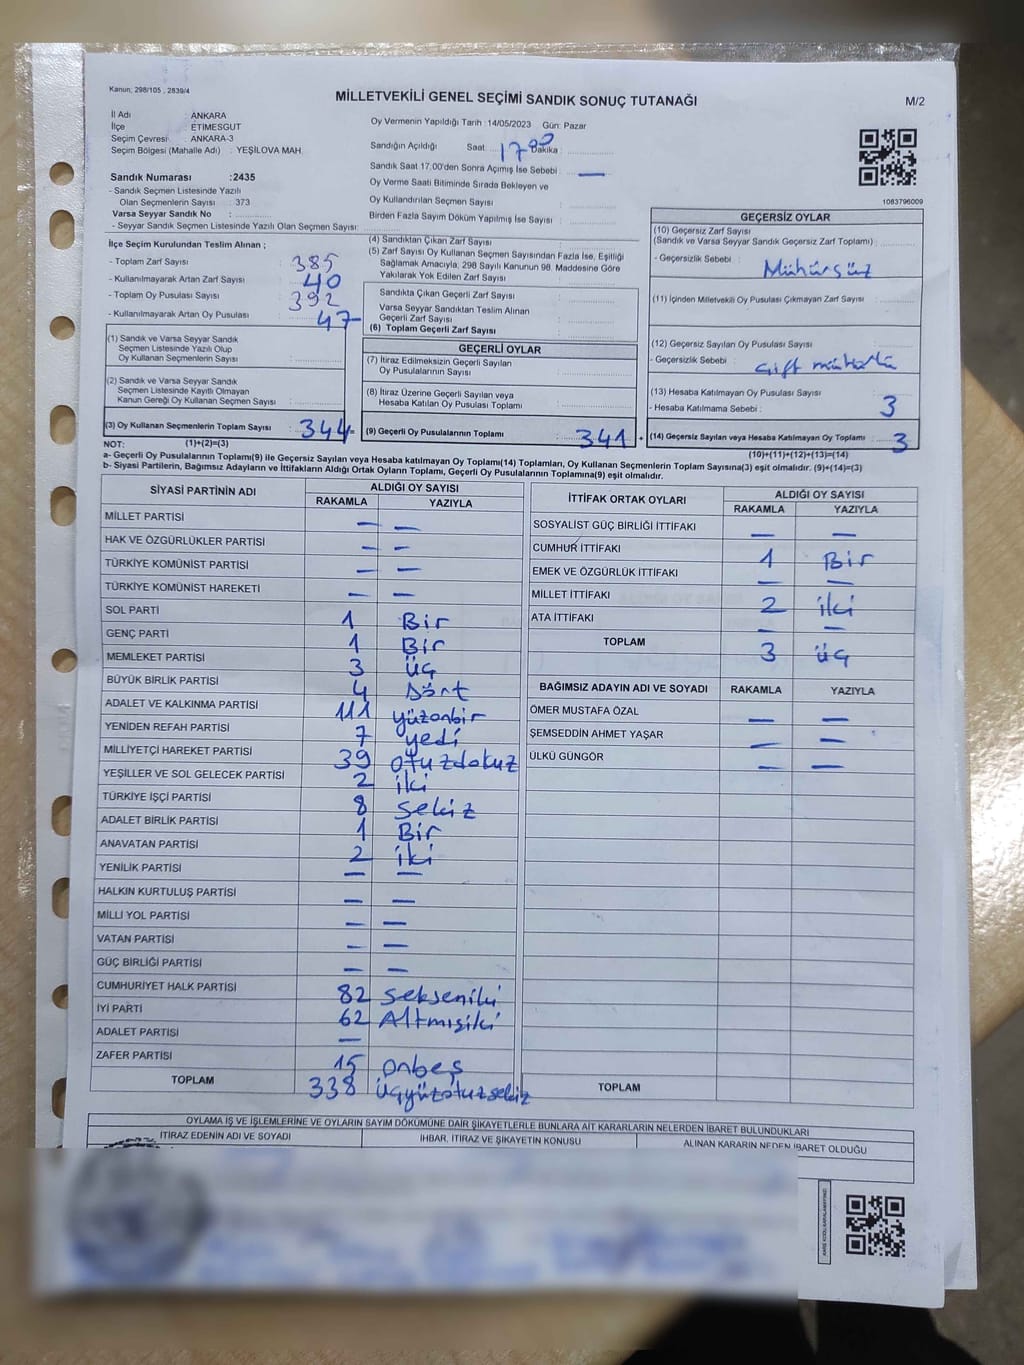 Kanun; 298/105 , 2839/4
MİLLETVEKİLİ GENEL SEÇİMİ SANDIK SONUÇ TUTANAĞI
M/2
İl Adı ANKARA
İlçe ETİMESGUT
Seçim Çevresi ANKARA-3
Seçim Bölgesi (Mahalle Adı) : YEŞİLOVA MAH.
Sandık Numarası :2435
- Sandık Seçmen Listesinde Yazılı
Olan Seçmenlerin Sayısı : 373
Varsa Seyyar Sandık No :
- Seyyar Sandık Seçmen Listesinde Yazılı Olan Seçmen Sayısı:
Oy Vermenin Yapıldığı Tarih :14/05/2023 Gün: Pazar
Sandığın Açıldığı Saat: 17 00 Dakika :
Sandık Saat 17.00'den Sonra Açımış İse Sebebi : —
Oy Verme Saati Bitiminde Sırada Bekleyen ve
Oy Kullandırılan Seçmen Sayısı :
Birden Fazla Sayım Döküm Yapılmış İse Sayısı :
1083796009
İlçe Seçim Kurulundan Teslim Alınan ;
- Toplam Zarf Sayısı : 385
- Kullanılmayarak Artan Zarf Sayısı : 40
- Toplam Oy Pusulası Sayısı : 392
- Kullanılmayarak Artan Oy Pusulası : 47
(1) Sandık ve Varsa Seyyar Sandık
Seçmen Listesinde Yazılı Olup
Oy Kullanan Seçmenlerin Sayısı :
(2) Sandık ve Varsa Seyyar Sandık
Seçmen Listesinde Kayıtlı Olmayan
Kanun Gereği Oy Kullanan Seçmen Sayısı :
(3) Oy Kullanan Seçmenlerin Toplam Sayısı : 344 =
(4) Sandıktan Çıkan Zarf Sayısı :
(5) Zarf Sayısı Oy Kullanan Seçmen Sayısından Fazla İse, Eşitliği
Sağlamak Amacıyla; 298 Sayılı Kanunun 98. Maddesine Göre
Yakılarak Yok Edilen Zarf Sayısı :
Sandıkta Çıkan Geçerli Zarf Sayısı :
Varsa Seyyar Sandıktan Teslim Alınan
Geçerli Zarf Sayısı :
(6) Toplam Geçerli Zarf Sayısı :
GEÇERLİ OYLAR
(7) İtiraz Edilmeksizin Geçerli Sayılan
Oy Pusulalarının Sayısı :
(8) İtiraz Üzerine Geçerli Sayılan veya
Hesaba Katılan Oy Pusulası Toplamı :
(9) Geçerli Oy Pusulalarının Toplamı : 341 +
GEÇERSİZ OYLAR
(10) Geçersiz Zarf Sayısı
(Sandık ve Varsa Seyyar Sandık Geçersiz Zarf Toplamı) :
- Geçersizlik Sebebi : Mühürsüz
(11) İçinden Milletvekili Oy Pusulası Çıkmayan Zarf Sayısı :
(12) Geçersiz Sayılan Oy Pusulası Sayısı :
- Geçersizlik Sebebi : çift mühürlü
(13) Hesaba Katılmayan Oy Pusulası Sayısı :
- Hesaba Katılmama Sebebi : 3
(14) Geçersiz Sayılan veya Hesaba Katılmayan Oy Toplamı : 3
NOT: (1)+(2)=(3)
(10)+(11)+(12)+(13)=(14)
a- Geçerli Oy Pusulalarının Toplamı(9) ile Geçersiz Sayılan veya Hesaba Katılmayan Oy Toplamı(14) Toplamları, Oy Kullanan Seçmenlerin Toplam Sayısına(3) eşit olmalıdır. (9)+(14)=(3)
b- Siyasi Partilerin, Bağımsız Adayların ve İttifakların Aldığı Ortak Oyların Toplamı, Geçerli Oy Pusulalarının Toplamına(9) eşit olmalıdır.
SİYASİ PARTİNİN ADI ALDIĞI OY SAYISI
RAKAMLA YAZIYLA
MİLLET PARTİSİ — —
HAK VE ÖZGÜRLÜKLER PARTİSİ — —
TÜRKİYE KOMÜNİST PARTİSİ — —
TÜRKİYE KOMÜNİST HAREKETİ — —
SOL PARTİ 1 Bir
GENÇ PARTİ 1 Bir
MEMLEKET PARTİSİ 3 üç
BÜYÜK BİRLİK PARTİSİ 4 Dört
ADALET VE KALKINMA PARTİSİ 111 yüzonbir
YENİDEN REFAH PARTİSİ 7 yedi
MİLLİYETÇİ HAREKET PARTİSİ 39 otuzdokuz
YEŞİLLER VE SOL GELECEK PARTİSİ 2 iki
TÜRKİYE İŞÇİ PARTİSİ 8 sekiz
ADALET BİRLİK PARTİSİ 1 Bir
ANAVATAN PARTİSİ 2 iki
YENİLİK PARTİSİ — —
HALKIN KURTULUŞ PARTİSİ — —
MİLLİ YOL PARTİSİ — —
VATAN PARTİSİ — —
GÜÇ BİRLİĞİ PARTİSİ — —
CUMHURİYET HALK PARTİSİ 82 sekseniki
İYİ PARTİ 62 Altmışiki
ADALET PARTİSİ —
ZAFER PARTİSİ 15 onbeş
TOPLAM 338 üçyüzotuzsekiz
İTTİFAK ORTAK OYLARI ALDIĞI OY SAYISI
RAKAMLA YAZIYLA
SOSYALİST GÜÇ BİRLİĞİ İTTİFAKI — —
CUMHUR İTTİFAKI 1 Bir
EMEK VE ÖZGÜRLÜK İTTİFAKI — —
MİLLET İTTİFAKI 2 iki
ATA İTTİFAKI — —
TOPLAM 3 üç
BAĞIMSIZ ADAYIN ADI VE SOYADI RAKAMLA YAZIYLA
ÖMER MUSTAFA ÖZAL — —
ŞEMSEDDİN AHMET YAŞAR — —
ÜLKÜ GÜNGÖR — —
TOPLAM
OYLAMA İŞ VE İŞLEMLERİNE VE OYLARIN SAYIM DÖKÜMÜNE DAİR ŞİKAYETLERLE BUNLARA AİT KARARLARIN NELERDEN İBARET BULUNDUKLARI
İTİRAZ EDENİN ADI VE SOYADI İHBAR, İTİRAZ VE ŞİKAYETİN KONUSU ALINAN KARARIN NEDEN İBARET OLDUĞU